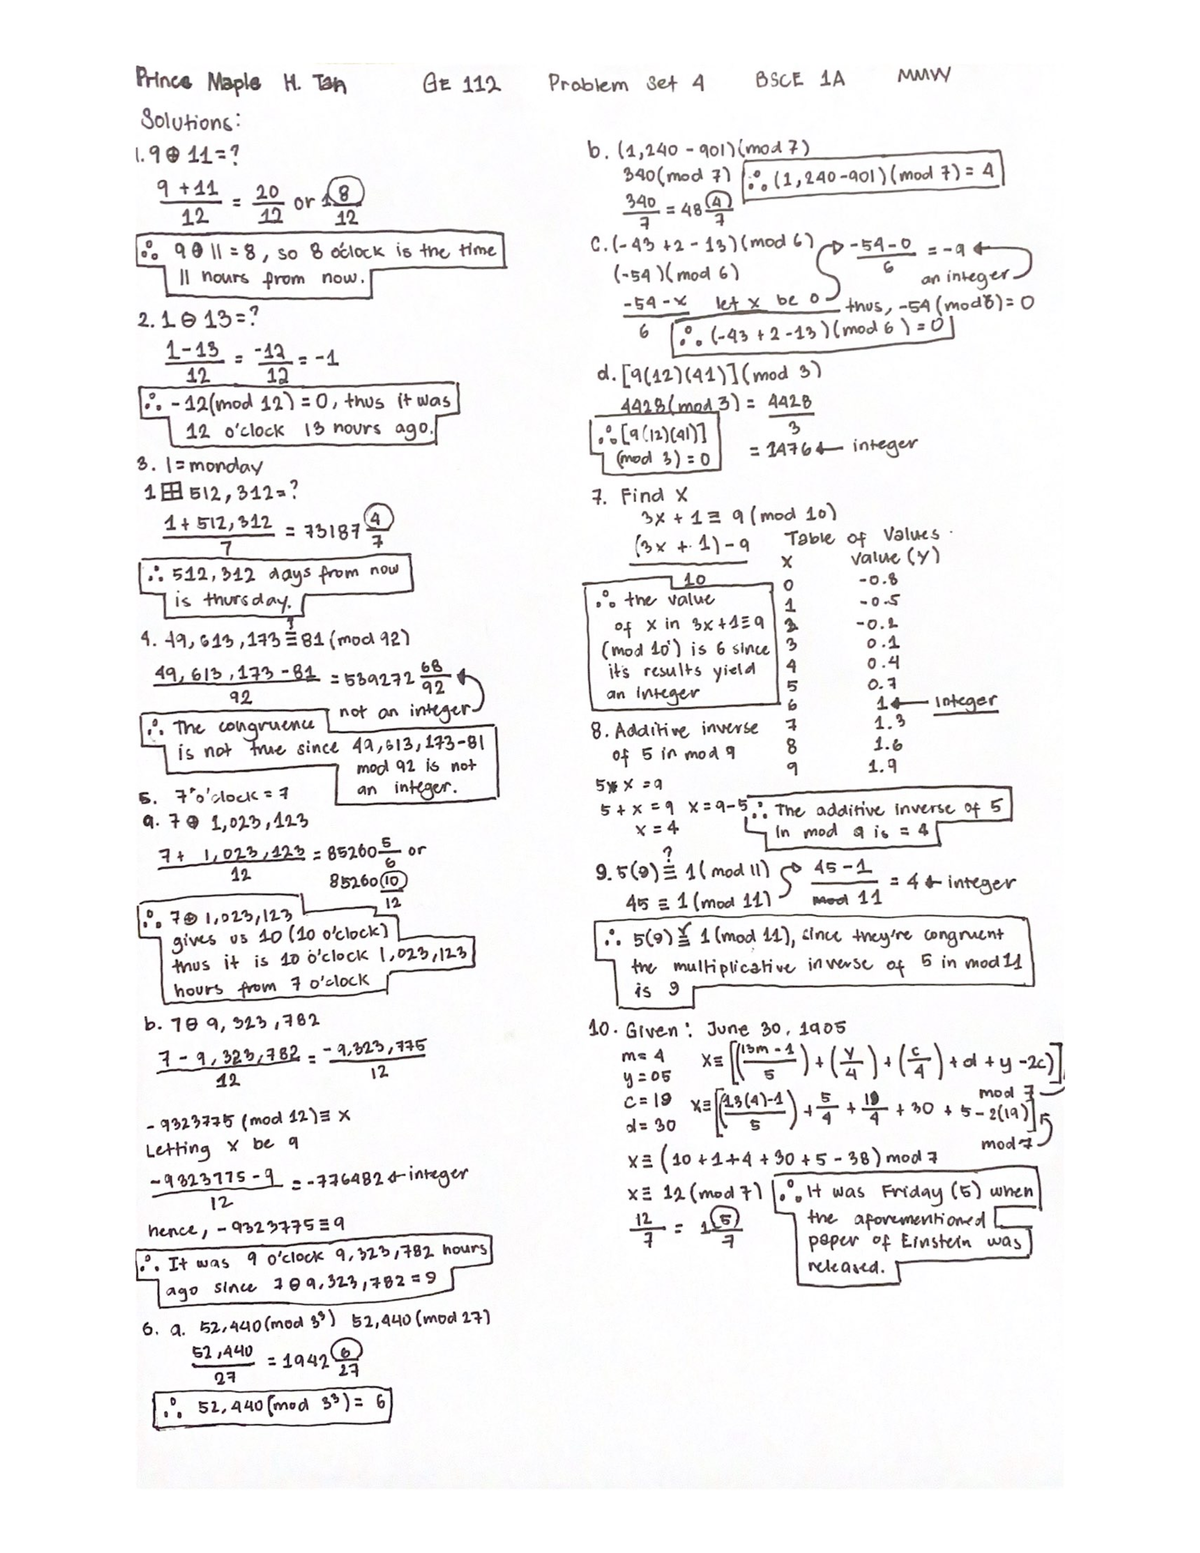 Prince Maple H. Tan GE 112 Problem Set 4 BSCE 1A MMW
Solutions:
1. 9 ⊕ 11 = ?
9 + 11 / 12 = 20 / 12 or 1 8 / 12
∴ 9 ⊕ 11 = 8, so 8 o'clock is the time
11 hours from now.
2. 1 ⊖ 13 = ?
1 - 13 / 12 = -12 / 12 = -1
∴ -12 (mod 12) = 0, thus it was
12 o'clock 13 hours ago.
3. 1 = monday
1 ⊞ 512,312 = ?
1 + 512,312 / 7 = 73187 4 / 7
∴ 512,312 days from now
is thursday.
?
4. 49,613,173 ≡ 81 (mod 92)
49,613,173 - 81 / 92 = 539272 68 / 92
not an integer
∴ The congruence
is not true since 49,613,173-81
mod 92 is not
an integer.
5. 7 o'clock = 7
a. 7 ⊕ 1,023,123
7 + 1,023,123 / 12 = 85260 5 / 6 or
85260 10 / 12
∴ 7 ⊕ 1,023,123
gives us 10 (10 o'clock)
thus it is 10 o'clock 1,023,123
hours from 7 o'clock
b. 7 ⊖ 9,323,782
7 - 9,323,782 / 12 = -9,323,775 / 12
-9323775 (mod 12) ≡ x
Letting x be 9
-9323775 - 9 / 12 = -776982 ← integer
hence, -9323775 ≡ 9
∴ It was 9 o'clock 9,323,782 hours
ago since 7 ⊖ 9,323,782 = 9
6. a. 52,440 (mod 3³) 52,440 (mod 27)
52,440 / 27 = 1942 6 / 27
∴ 52,440 (mod 3³) = 6
b. (1,240 - 901) (mod 7)
340 (mod 7) ∴ (1,240-901) (mod 7) = 4
340 / 7 = 48 4 / 7
c. (-43 + 2 - 13) (mod 6) → -54 - 0 / 6 = -9 ←
(-54) (mod 6) an integer
-54 - x / 6 let x be 0 thus, -54 (mod 6) = 0
∴ (-43 + 2 - 13) (mod 6) = 0
d. [9(12)(41)] (mod 3)
4428 (mod 3) = 4428 / 3
∴ [9(12)(41)]
(mod 3) = 0
= 1476 ← integer
7. Find X
3x + 1 ≡ 9 (mod 10)
(3x + 1) - 9 / 10
∴ the value
of x in 3x+1≡9
(mod 10) is 6 since
it's results yield
an integer
Table of Values
X Value (Y)
0 -0.8
1 -0.5
2 -0.2
3 0.1
4 0.4
5 0.7
6 1 ← integer
7 1.3
8 1.6
9 1.9
8. Additive inverse
of 5 in mod 9
5 x = 9
5 + x = 9 x = 9-5
x = 4
∴ The additive inverse of 5
in mod 9 is = 4
?
9. 5(9) ≡ 1 (mod 11) → 45 - 1 / 11 = 4 ← integer
45 ≡ 1 (mod 11)
∴ 5(9) ≡ 1 (mod 11), since they're congruent
the multiplicative inverse of 5 in mod 11
is 9
10. Given: June 30, 1905
m = 4 x ≡ [(13m - 1 / 5) + (y / 4) + (c / 4) + d + y - 2c)]
y = 05 mod 7
c = 19 x ≡ [(13(4)-1 / 5) + 5 / 4 + 19 / 4 + 30 + 5 - 2(19)]
d = 30 mod 7
x ≡ (10 + 1 + 4 + 30 + 5 - 38) mod 7
x ≡ 12 (mod 7)
12 / 7 = 1 5 / 7
∴ It was Friday (5) when
the aforementioned
paper of Einstein was
released.